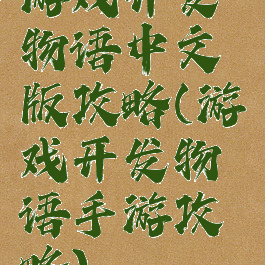 游戏开发
物语中文
版攻略(游
戏开发物
语手游攻
略)